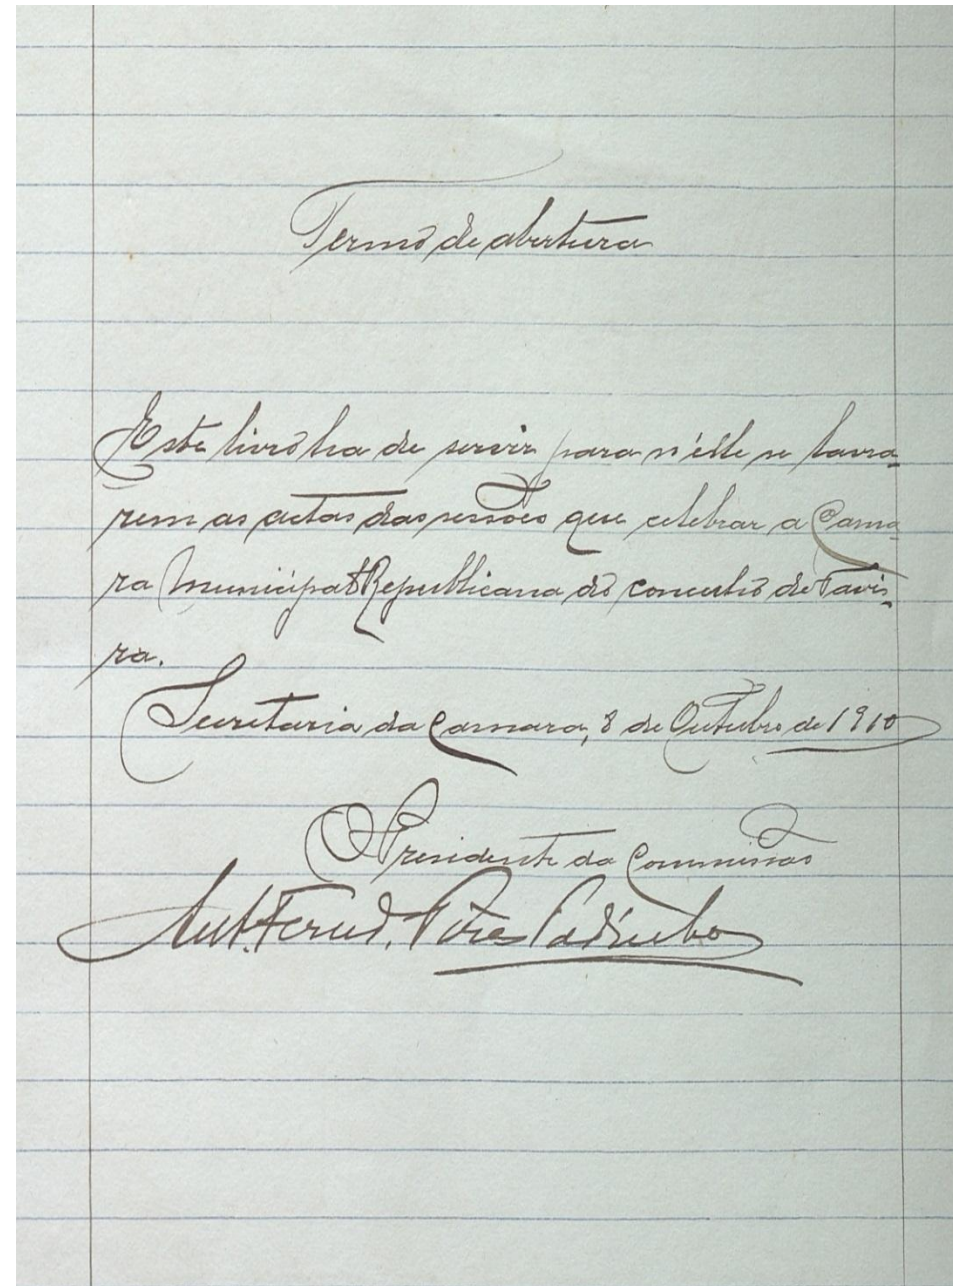 Termo de abertura
Este livro ha de servir para n'elle se lavra-
rem as actas das sessões que celebrar a Cama-
ra Municipal Republicana do concelho de Tavi-
ra.
Secretaria da Camara, 8 de Outubro de 1910
O Presidente da Commissão
Ant. Fernd. Pires Padinha